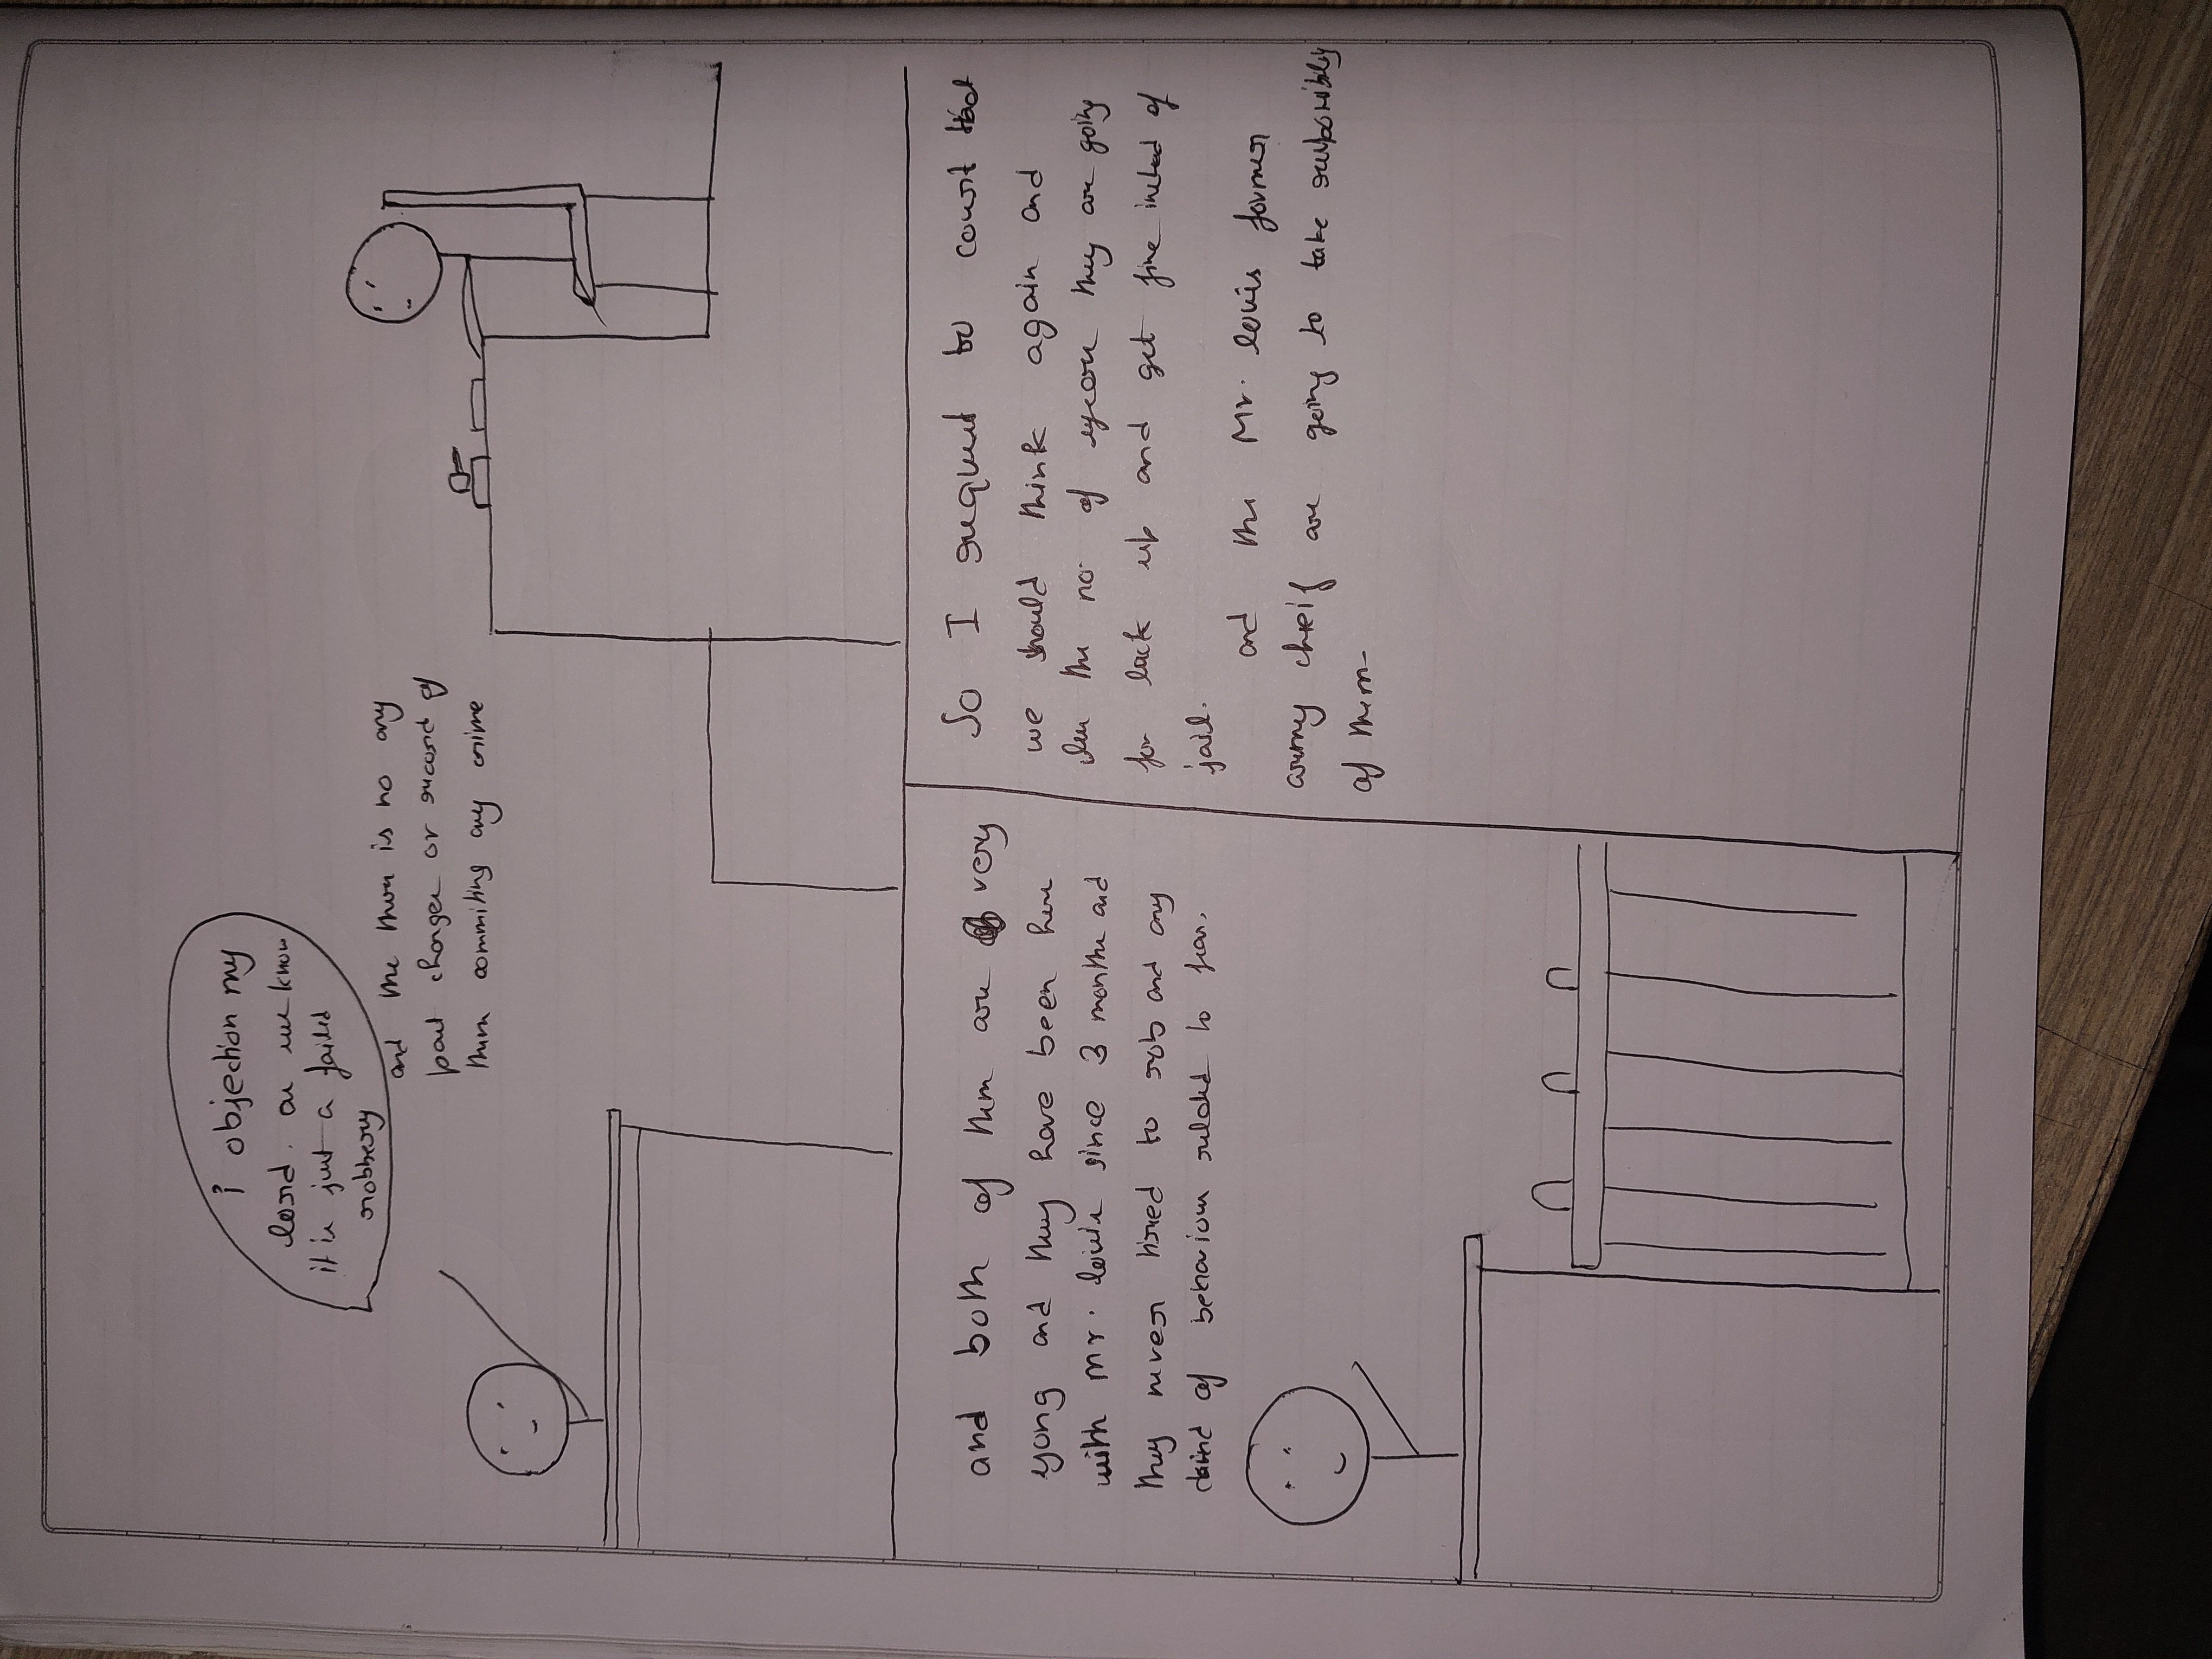 i objection my
lord. as we know
it is just a failed
robbery
and the ther is no any
past charges or record of
them commiting any crime
and both of them are very
yong and they have been here
with Mr. louis since 3 months and
they never tired to rob and any
kind of behaviour related to
So I request to court that
we should think again and
the no. of years they are going
for lock up and get fine insted of
jail.
and the Mr. louis former
army cheif are going to take responsibility
of them